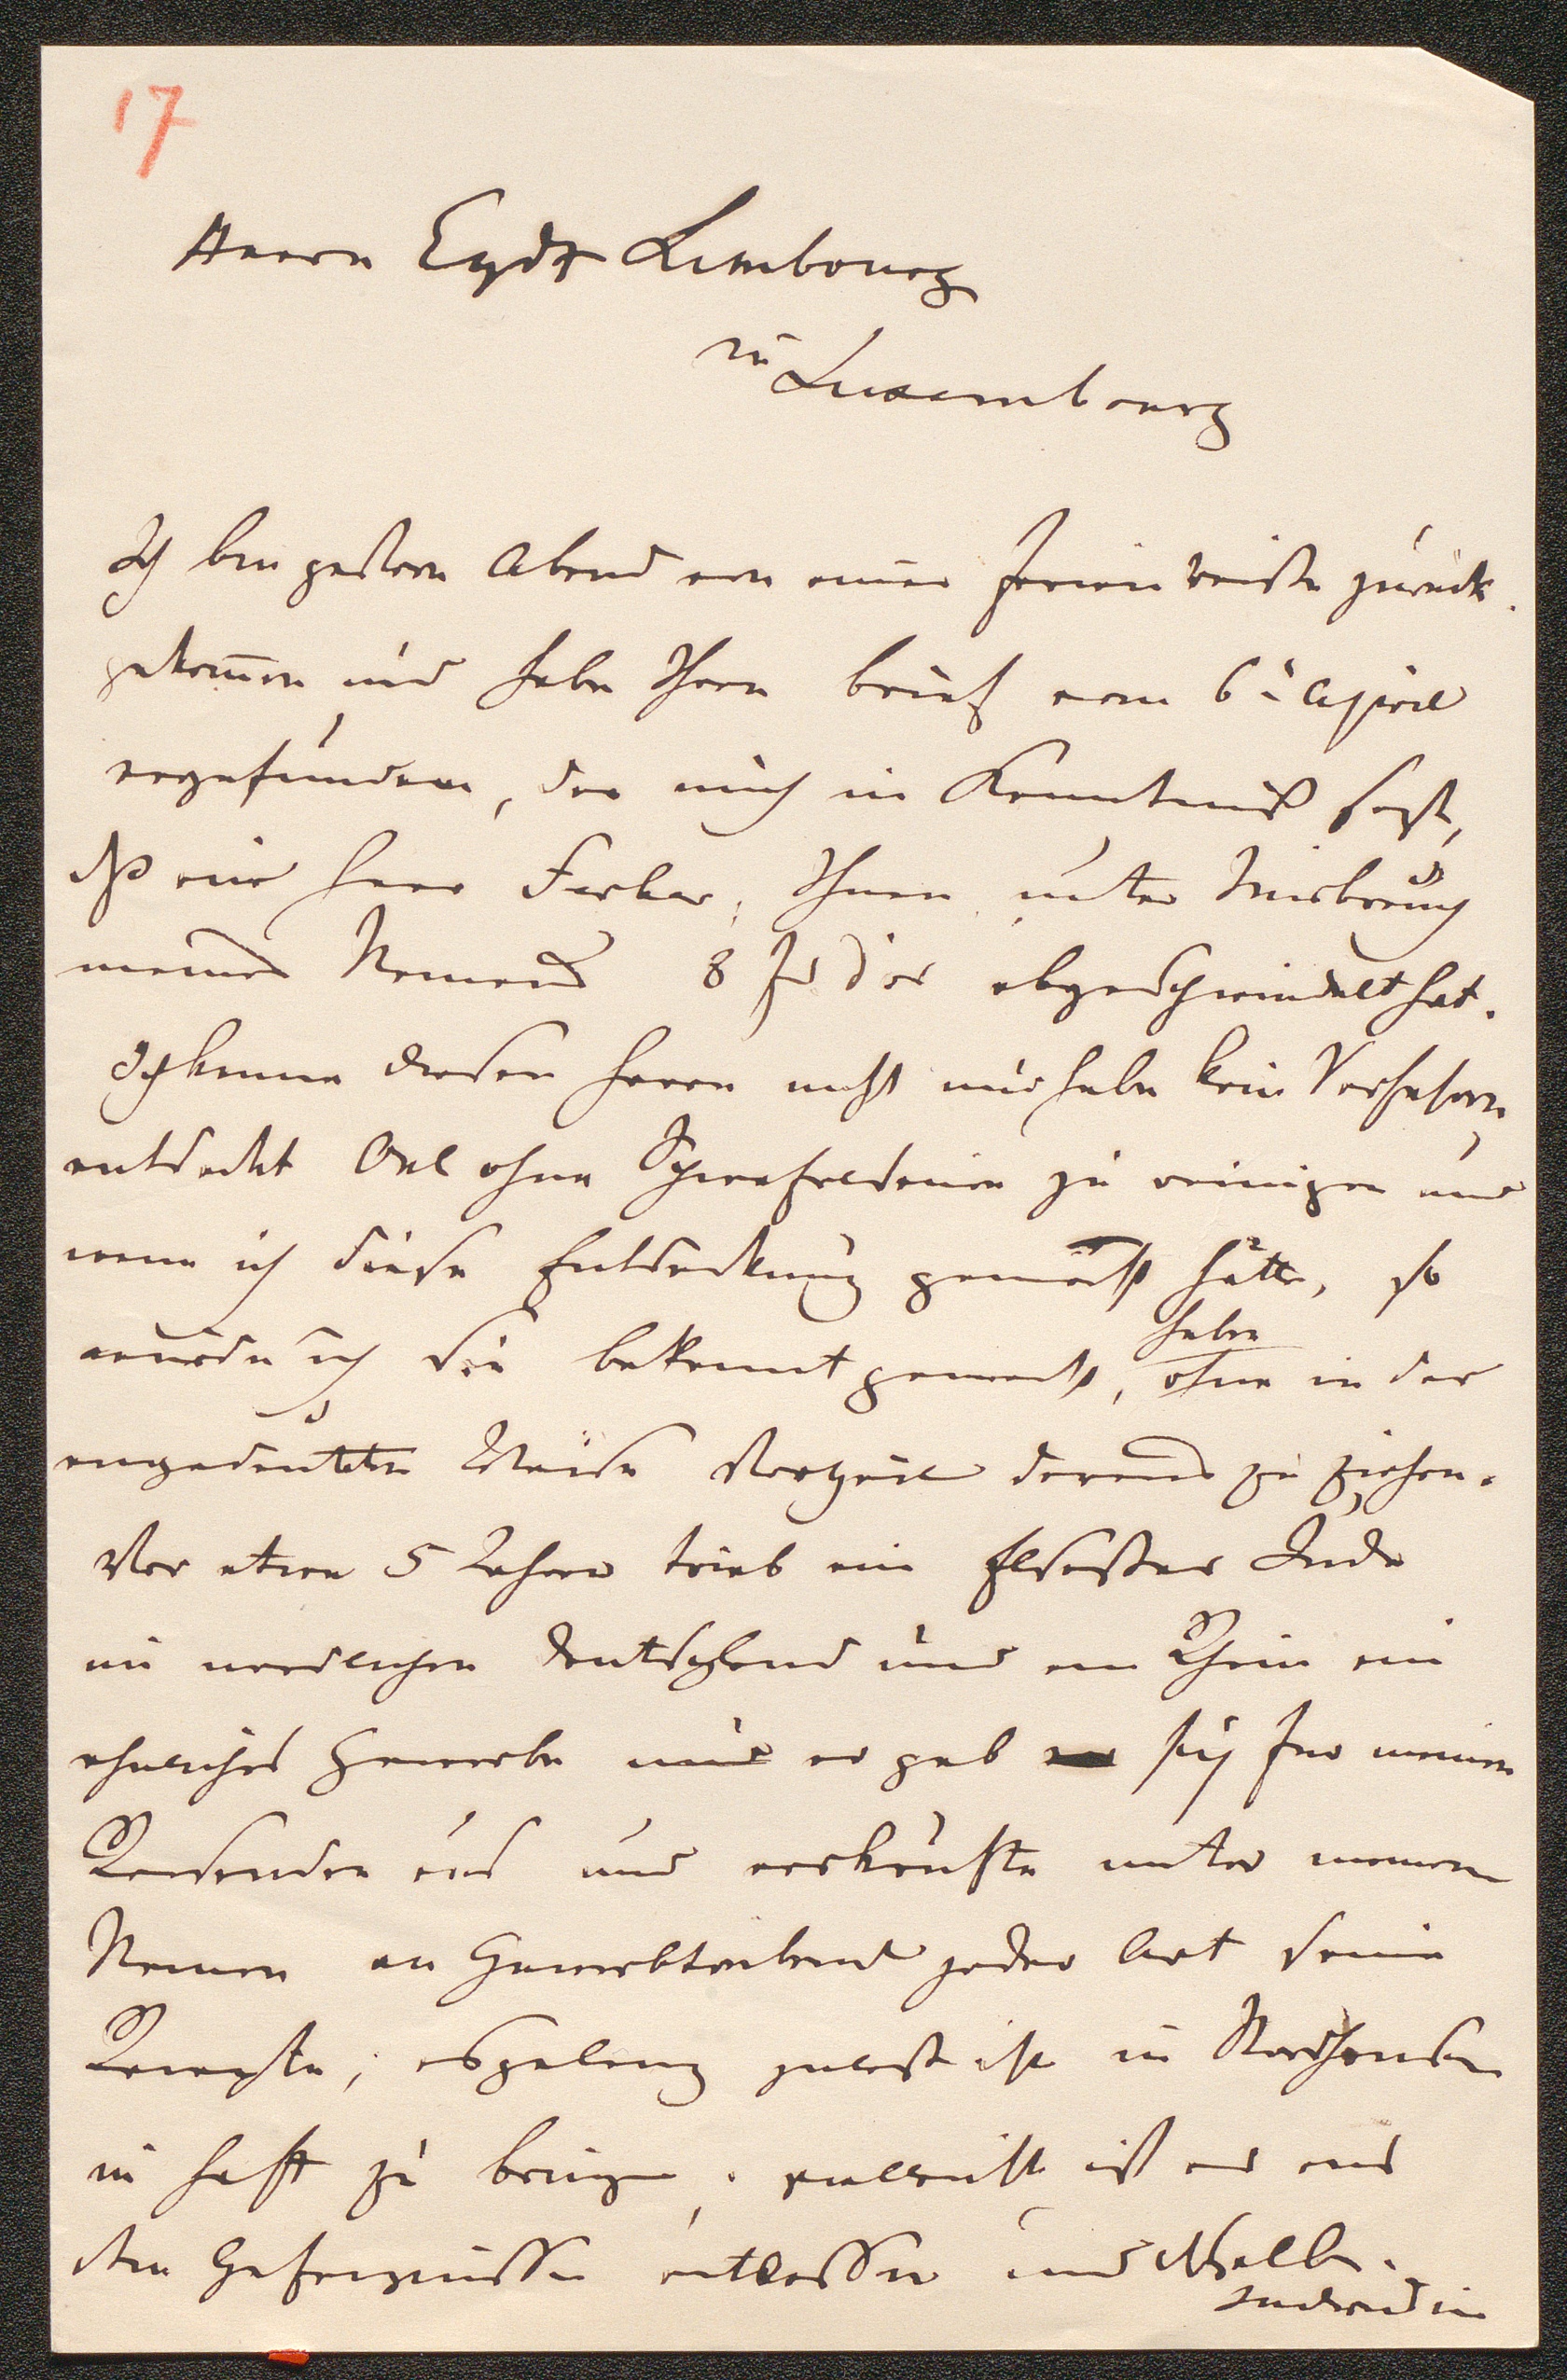 17
Herrn Eydt Limbourg
in Luxembourg
Ich bin gestern Abend von einer Ferienreise zurück
gekom̅en und habe Ihren Brief vom 6n April
vorgefunden, der mich in Kenntniß setzt,
dß ein Herr Ferber, Ihnen unter Misbrauch
meines Namens 8 Frdor abgeschwindelt hat.
Ich kenne diesen Herrn nicht und habe kein Verfahren
entdeckt Oel ohne Schwefelsäure zu reinigen und
wenn ich diese Entdeckung gemacht hätte, so
würde ich sie bekannt gemacht haben, ohne in der
angedeuteten Weise Vortheil daraus zu ziehen.
Vor etwa 5 Jahren trieb ein Elsasser Jude
im nördlichen Deutschland und am Rhein ein
ähnliches Gewerbe und er gab sich für meinen
Reisenden aus und verkaufte unter meinem
Namen an Gewerbtreibende jeder Art seine
Recepte; es gelang zuletzt ihn in Nordhausen
in Haft zu bringen; vielleicht ist er aus
dem Gefängnisse entlassen und dasselbe
Individium